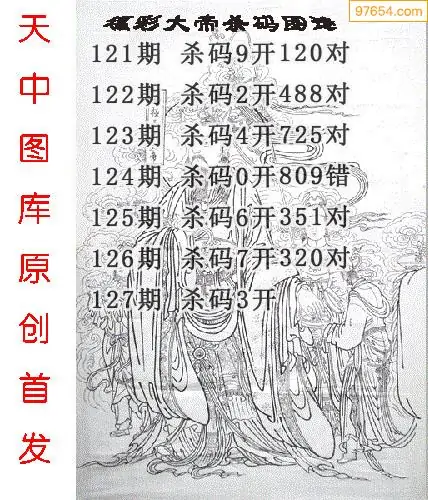 97654.com
福彩大帝杀码图迷
天中图库原创首发
121期 杀码9开120对
122期 杀码2开488对
123期 杀码4开725对
124期 杀码0开809错
125期 杀码6开351对
126期 杀码7开320对
127期 杀码3开